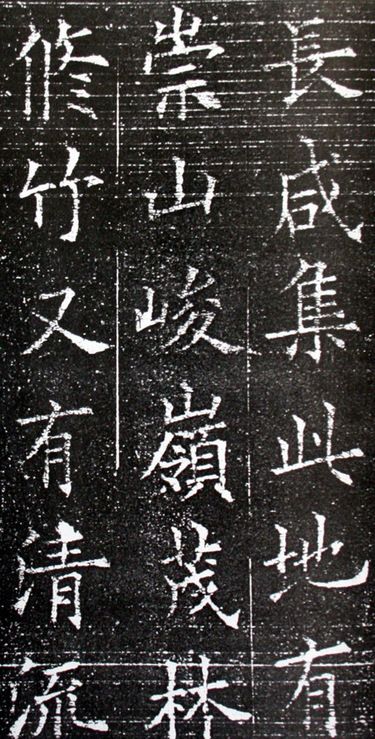 長咸集此地有
崇山峻嶺茂林
修竹又有清流